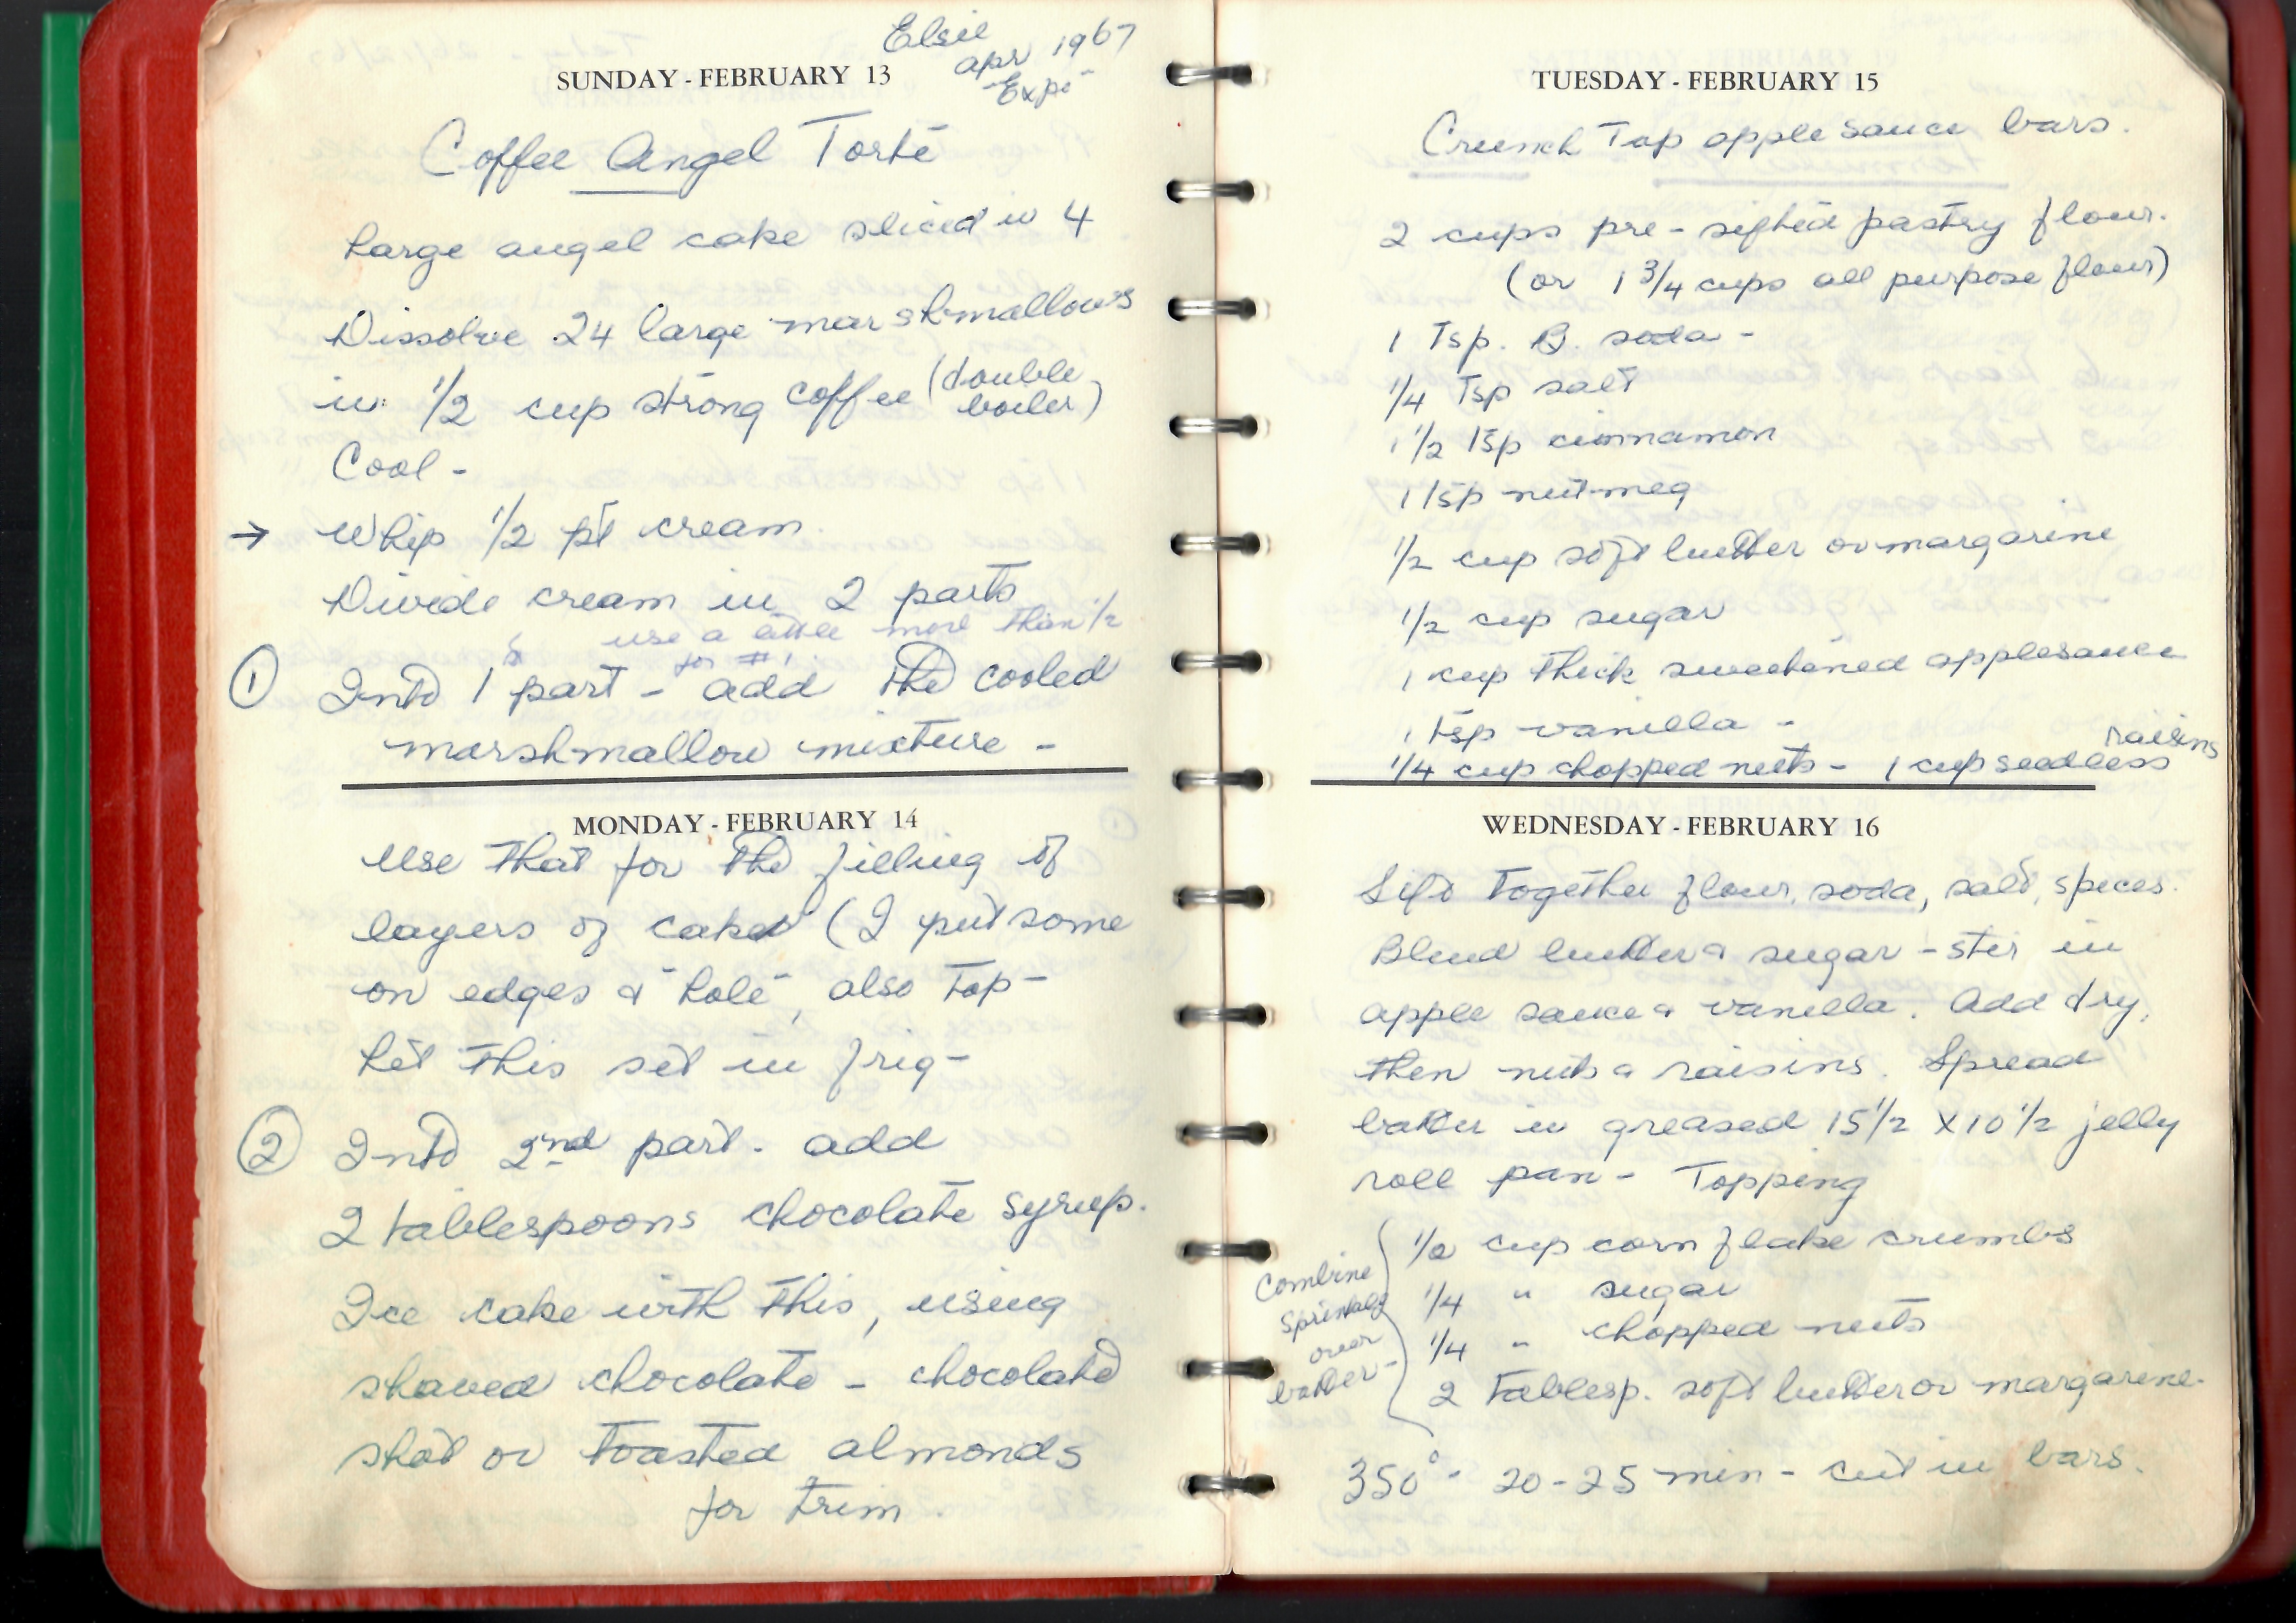 Elsie
apr 1967
"Expo"
SUNDAY - FEBRUARY 13
Coffee Angel Torte
Large angel cake sliced in 4
Dissolve 24 large marshmallows
in 1/2 cup strong coffee (double boiler)
Cool -
→ Whip 1/2 pt cream.
Divide cream in 2 parts
use a little more than 1/2
for #1.
① Into 1 part - add the cooled
marshmallow mixture -
MONDAY - FEBRUARY 14
Use that for the filling of
layers of cake (I put some
on edges & "hole", also top -
Let this set in frig -
② Into 2nd part. add
2 tablespoons chocolate syrup.
Ice cake with this, using
shaved chocolate - chocolate
shot or toasted almonds
for trim.
TUESDAY - FEBRUARY 15
Crunch Top apple sauce bars.
2 cups pre-sifted pastry flour.
(or 1 3/4 cups all purpose flour)
1 Tsp. B. soda -
1/4 Tsp salt
1 1/2 Tsp cinnamon
1 Tsp nutmeg
1/2 cup soft butter or margarine
1/2 cup sugar
1 cup thick sweetened applesauce
1 tsp vanilla -
1/4 cup chopped nuts - 1 cup seedless raisins
WEDNESDAY - FEBRUARY 16
Sift together flour, soda, salt, spices.
Blend butter & sugar - stir in
apple sauce & vanilla. Add dry,
then nuts & raisins. Spread
batter in greased 15 1/2 X 10 1/2 jelly
roll pan - Topping
Combine
Sprinkle
over
batter -
1/2 cup corn flake crumbs
1/4 " sugar
1/4 " chopped nuts
2 Tablesp. soft butter or margarine.
350° - 20-25 min - cut in bars.